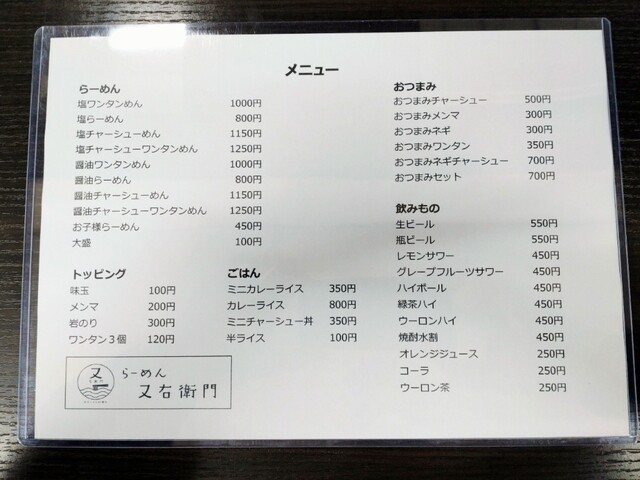 メニュー
らーめん
塩ワンタンめん 1000円
塩らーめん 800円
塩チャーシューめん 1150円
塩チャーシューワンタンめん 1250円
醤油ワンタンめん 1000円
醤油らーめん 800円
醤油チャーシューめん 1150円
醤油チャーシューワンタンめん 1250円
お子様らーめん 450円
大盛 100円
トッピング
味玉 100円
メンマ 200円
岩のり 300円
ワンタン3個 120円
ごはん
ミニカレーライス 350円
カレーライス 800円
ミニチャーシュー丼 350円
半ライス 100円
おつまみ
おつまみチャーシュー 500円
おつまみメンマ 300円
おつまみネギ 300円
おつまみワンタン 350円
おつまみネギチャーシュー 700円
おつまみセット 700円
飲みもの
生ビール 550円
瓶ビール 550円
レモンサワー 450円
グレープフルーツサワー 450円
ハイボール 450円
緑茶ハイ 450円
ウーロンハイ 450円
焼酎水割 450円
オレンジジュース 250円
コーラ 250円
ウーロン茶 250円
らーめん
又右衛門